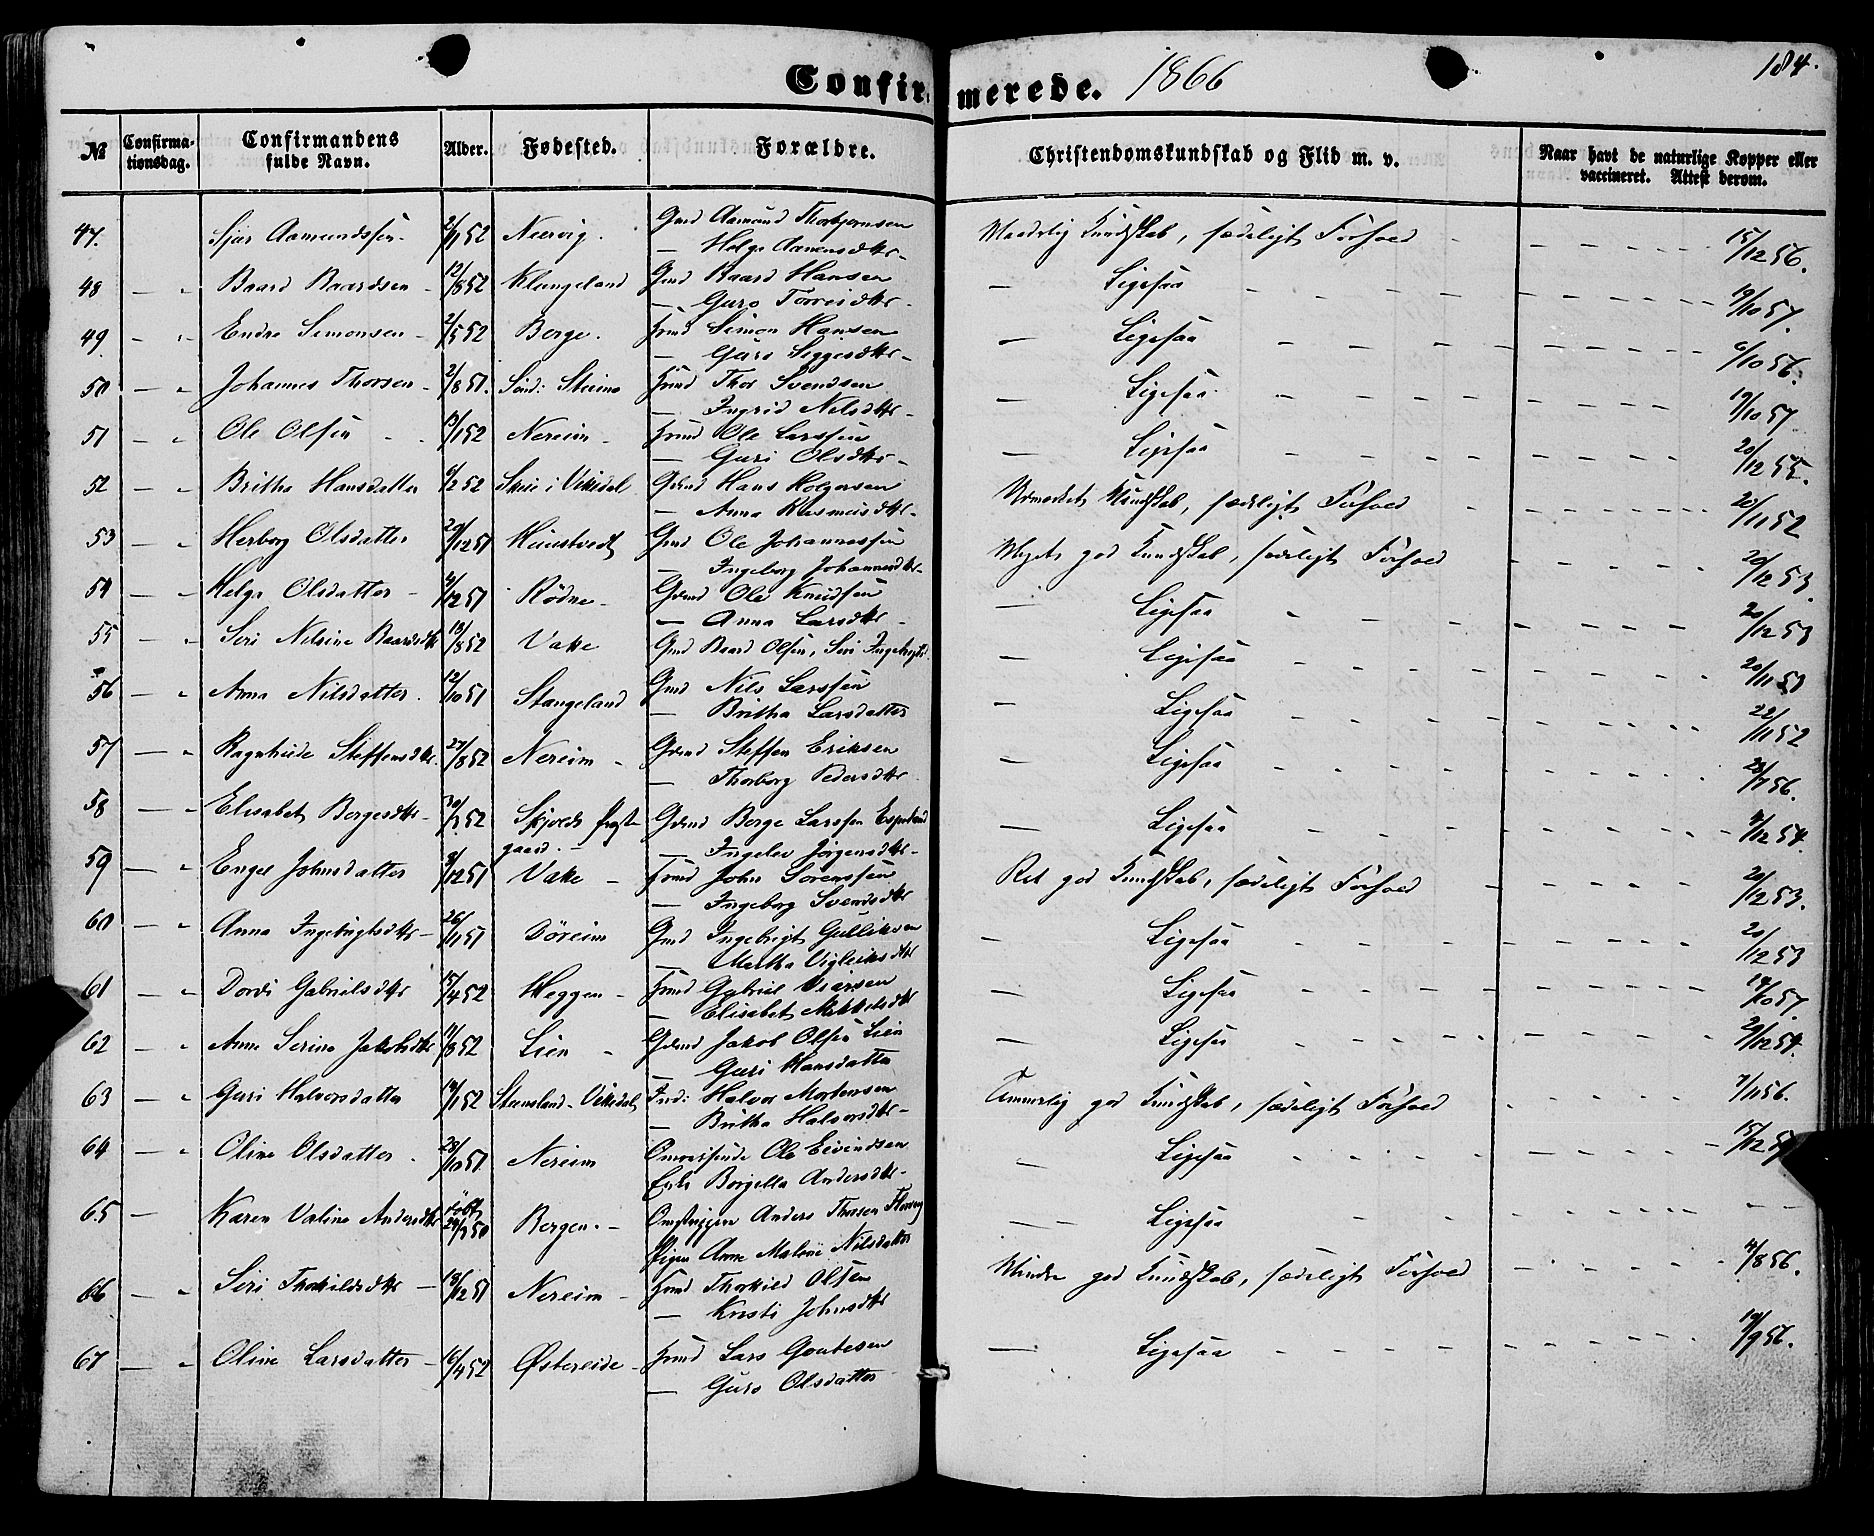 Confirmerede. 1866
184.
№ Confirmationsdag. Confirmandens fulde Navn. Alder. Fødested. Forældre. Christendomskundskab og Flid m. v. Naar havt de naturlige Kopper eller vaccineret. Attest derom.
47. Sjur Aamundssen 2/1 52 Nervig. Gmd Aamund Thorbjørnsen Maadelig Kundskab, sædeligt Forhold 15/12 56.
— Helga Aamundsdtr
48 — " Baard Baardsen 12/8 52 Klungeland Gmd Baard Hansen — Ligesaa 19/10 57.
— Guro Torrisdtr
49 — " Endre Simonsen 2/5 52 Berge. Hmd Simon Hansen — Ligesaa 6/10 56.
— Guro
50 — " Johannes Thorsen 2/8 51. Sönd: Steine Hmd Thor Svendsen — Ligesaa 19/10 57.
— Ingrid Nilsdtr
51 — " Ole Olsen /1 52 Nereim Hmd Ole Larssen — Ligesaa 20/12 55.
— Guri Olsdtr
52 — " Britha Hansdatter 6/2 52 i Vikedal Gdmd Hans Holgersen Udmærket Kundskab, sædeligt Forhold 20/11 52
— Anna Rasmusdtr
53 — " Herborg Olsdatter 20/12 51 Hunstvedt Gmd Ole Johannessen Meget god Kundskab, sædeligt Forhold 20/12 53.
— Ingeborg Johannesdtr
54 — " Helga Olsdatter 4/12 51 Rödne Gdmd Ole Knudsen — Ligesaa 20/12 53
— Anna Larsdtr
55 — " Siri Nilsine Baardsdtr 18/8 52 Vatte Gmd Baard Olsen, Siri Ingebrigtsd. — Ligesaa 20/11 53
56 — " Anna Nilsdatter. 12/10 51 Stangeland Gmd Nils Larssen — Ligesaa 22/11 52
— Britha Larsdatter
57 — " Ragnhilde Steffensdtr. 27/8 52 Nereim Gdmd Steffen Eriksen — Ligesaa 28/7 56.
— Thorborg Pedersdtr
58 — " Elisabet Børgesdtr 30/7 52 Skjolds Præstegaard. Gdmd Børge Larssen Espeland — Ligesaa /12 54.
— Ingelev Jørgensdtr
59 — " Engel Johnsdatter 3/12 51 Vatte Hmd John Sørenssen Ret god Kundskab, sædeligt Forhold 20/12 53.
— Ingeborg Svendsdtr
60 — " Anna Ingebrigtsdtr 26/11 51 Döreim Gmd Ingebrigt Gulliksen — Ligesaa 20/12 53
— Martha Vigleiksdtr
61 — " Dordi Gabrielsdtr 15/4 52 Heggen Hmd Gabriel Viarsen — Ligesaa 19/10 57.
— Elisabet Mikkelsdtr
62 — " Anne Serine Jakobsdtr 11/8 52 Lien Gdmd Jakob Olsen Lien — Ligesaa 29/12 54.
— Guri Hansdatter
63 — " Guri Halvorsdatter 14/1 52 Steensland - Vikedal Ind: Halvor Mortensen Temmelig god Kundskab, sædeligt Forhold 7/11 56.
— Britha Halvorsdtr
64 — " Oline Olsdatter 28/10 51 Nereim Ole Eivindsen — Ligesaa 15/12 57
Enke Borgella Andersdtr
65 — Karen Valine Andersdtr döbt 29/7 50 Bergen. Anders Thosen — Ligesaa
Pigen Anne Malene Nilsdatter
66 — " Siri Thorkildsdtr 18/12 51 Nereim Hmd Thorkild Olsen Mindre god Kundskab, sædeligt Forhold 4/8 56.
— Kristi Johnsdtr
67 — " Oline Larsdatter 16/4 52 Østereide Hmd Lars Goutesen — Ligesaa 19/9 56.
— Guro Olsdatter